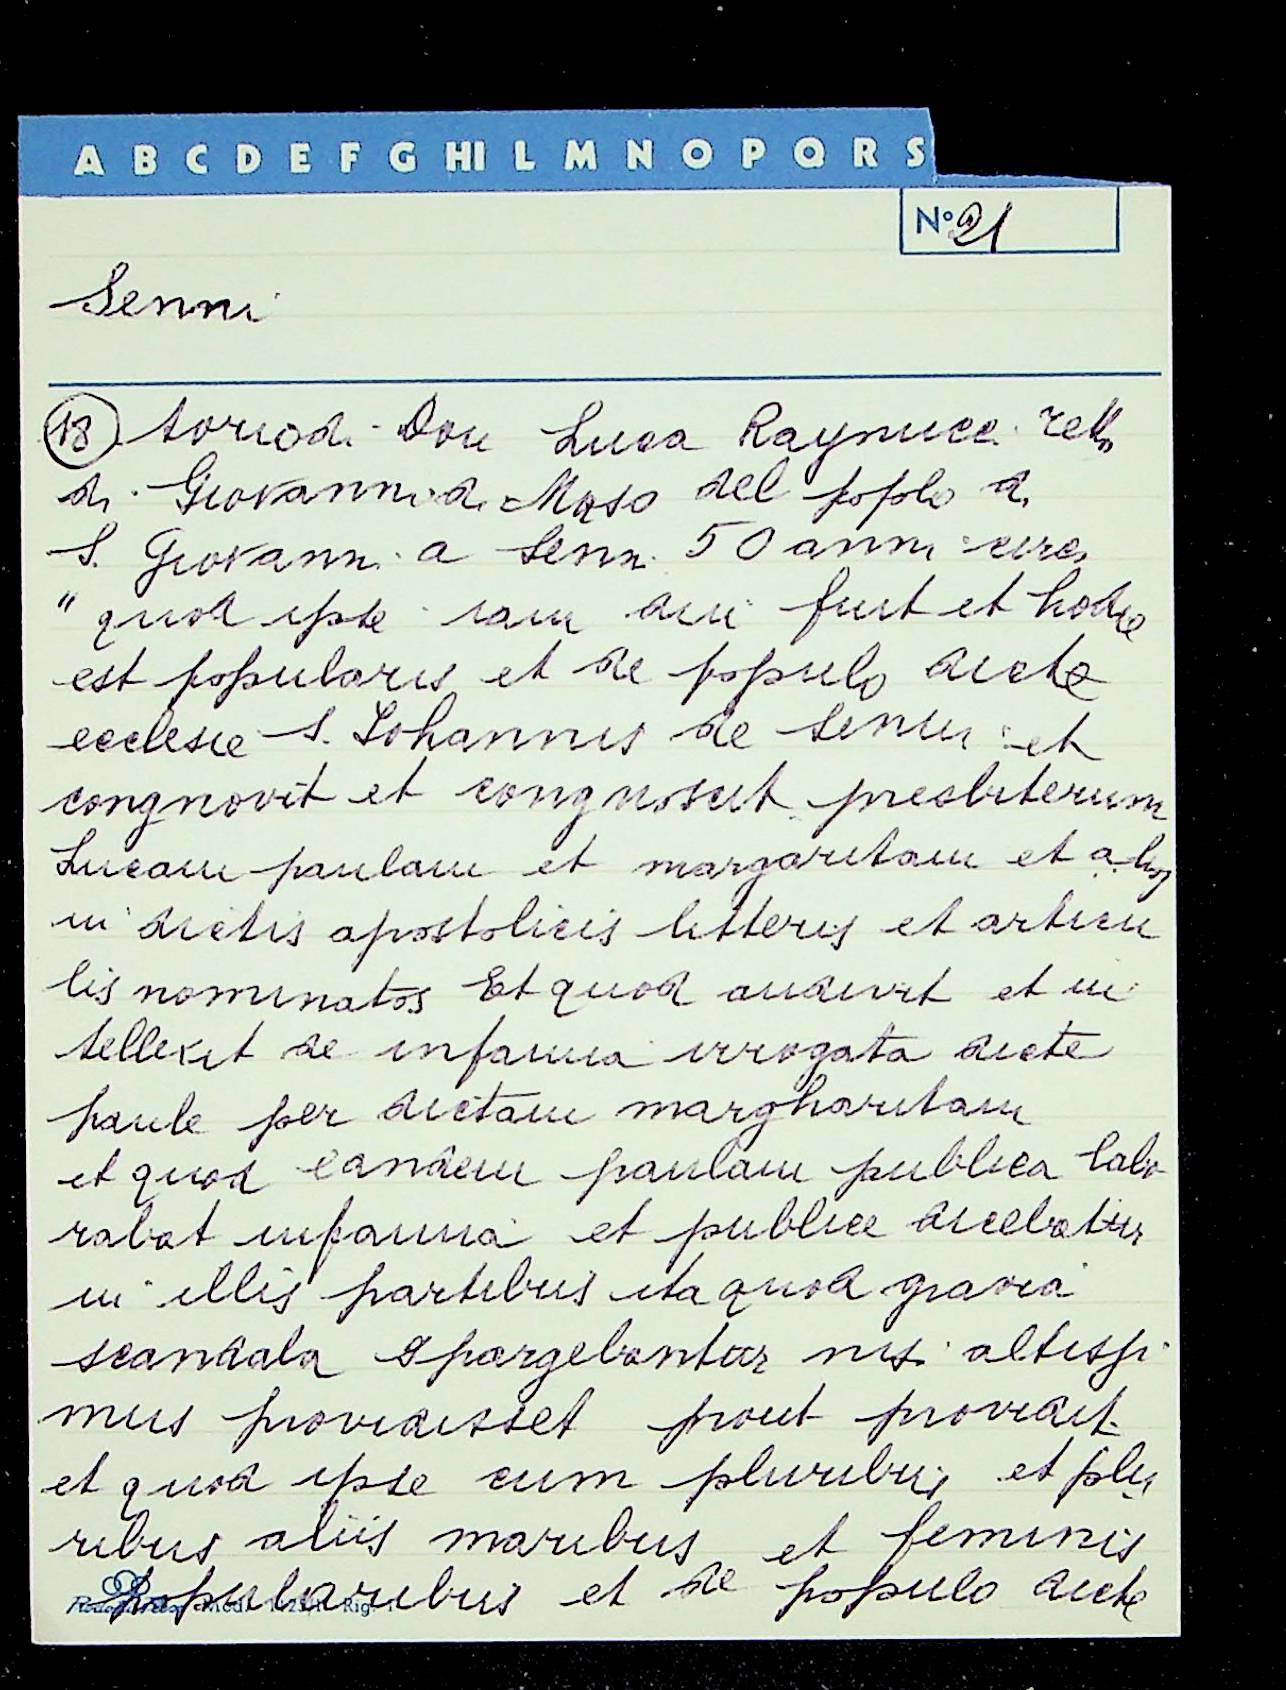 A B C D E F G HI L M N O P Q R S
N° 21
Senni
18 tori di Don Luca Raynucci
di Giovanni di Maso del popolo di
S. Giovanni a Senni 50 anni circa
" quod ipse iam diu fuit et hodie
est popularis et de populo dicte
ecclesie S. Iohannis de Senni et
congnovit et congnoscit presbiterum
Lucam paulam et margaritam et alios
in dictis apostolicis litteris et articu
lis nominatos Et quod audivit et in
tellexit de infamia irrogata dicte
paule per dictam margharitam
et quod eandem paulam publica labo
rabat infamia et publice dicebatur
in illis partibus ita quod gravia
scandala spargebantur nisi altissi
mus providisset prout providit
et quod ipse cum pluribus et plu
ribus aliis maribus et feminis
popularibus et de populo dicte